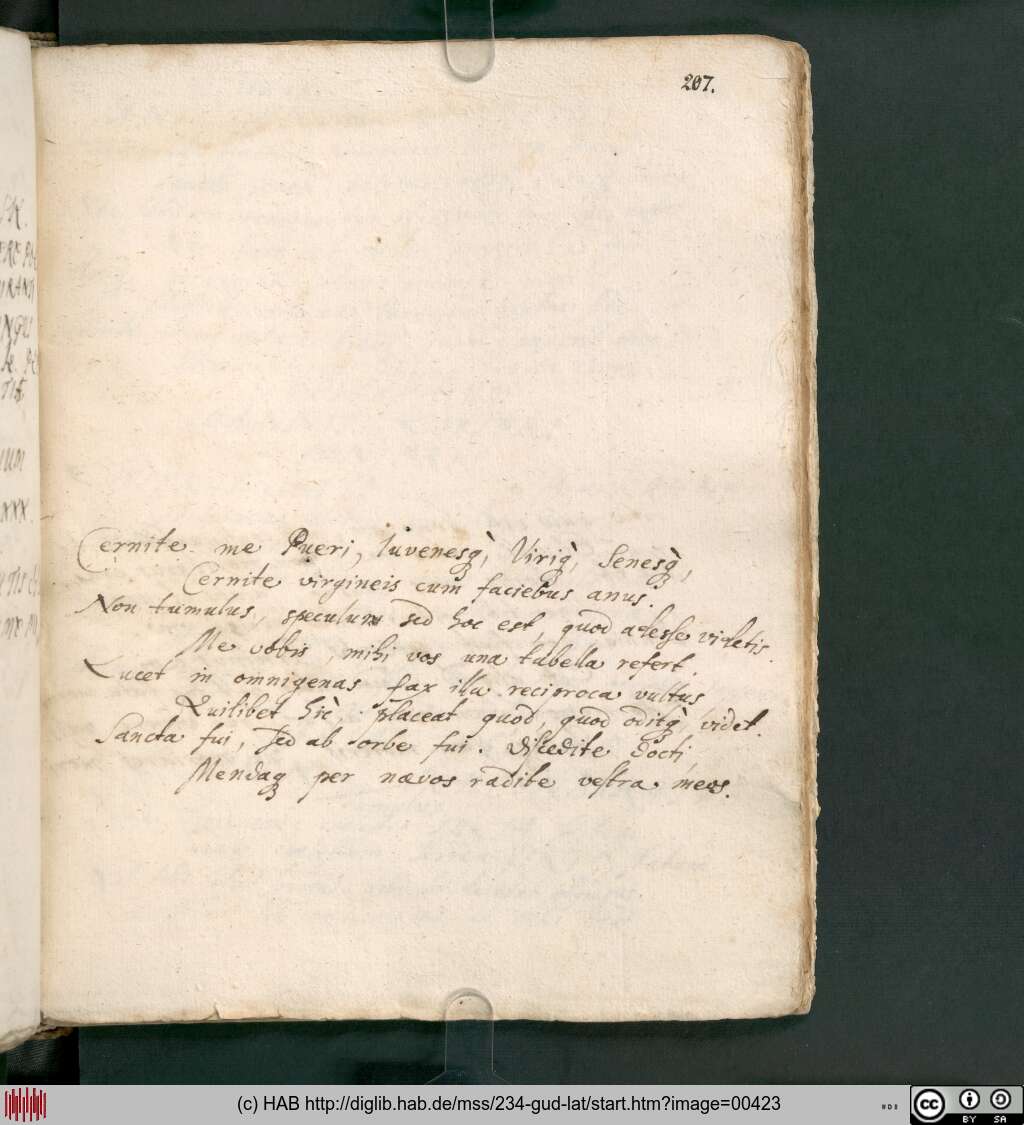 207.
Cernite me Pueri, Iuvenesq;, Viriq;, Senesq;,
Cernite virgineis cum faciebus anus.
Non tumulus, speculum sed hoc est, quod adesse videtis.
Me vobis, mihi vos una tabella refert.
Lucet in omnigenas fax illa reciproca vultus
Quilibet hìc, placeat quod, quod oditq;, videt.
Sancta fui, sed ab orbe fui. Discedite docti
Mendaq; per nævos radite vestra meos.
(c) HAB http://diglib.hab.de/mss/234-gud-lat/start.htm?image=00423
cc
BY SA